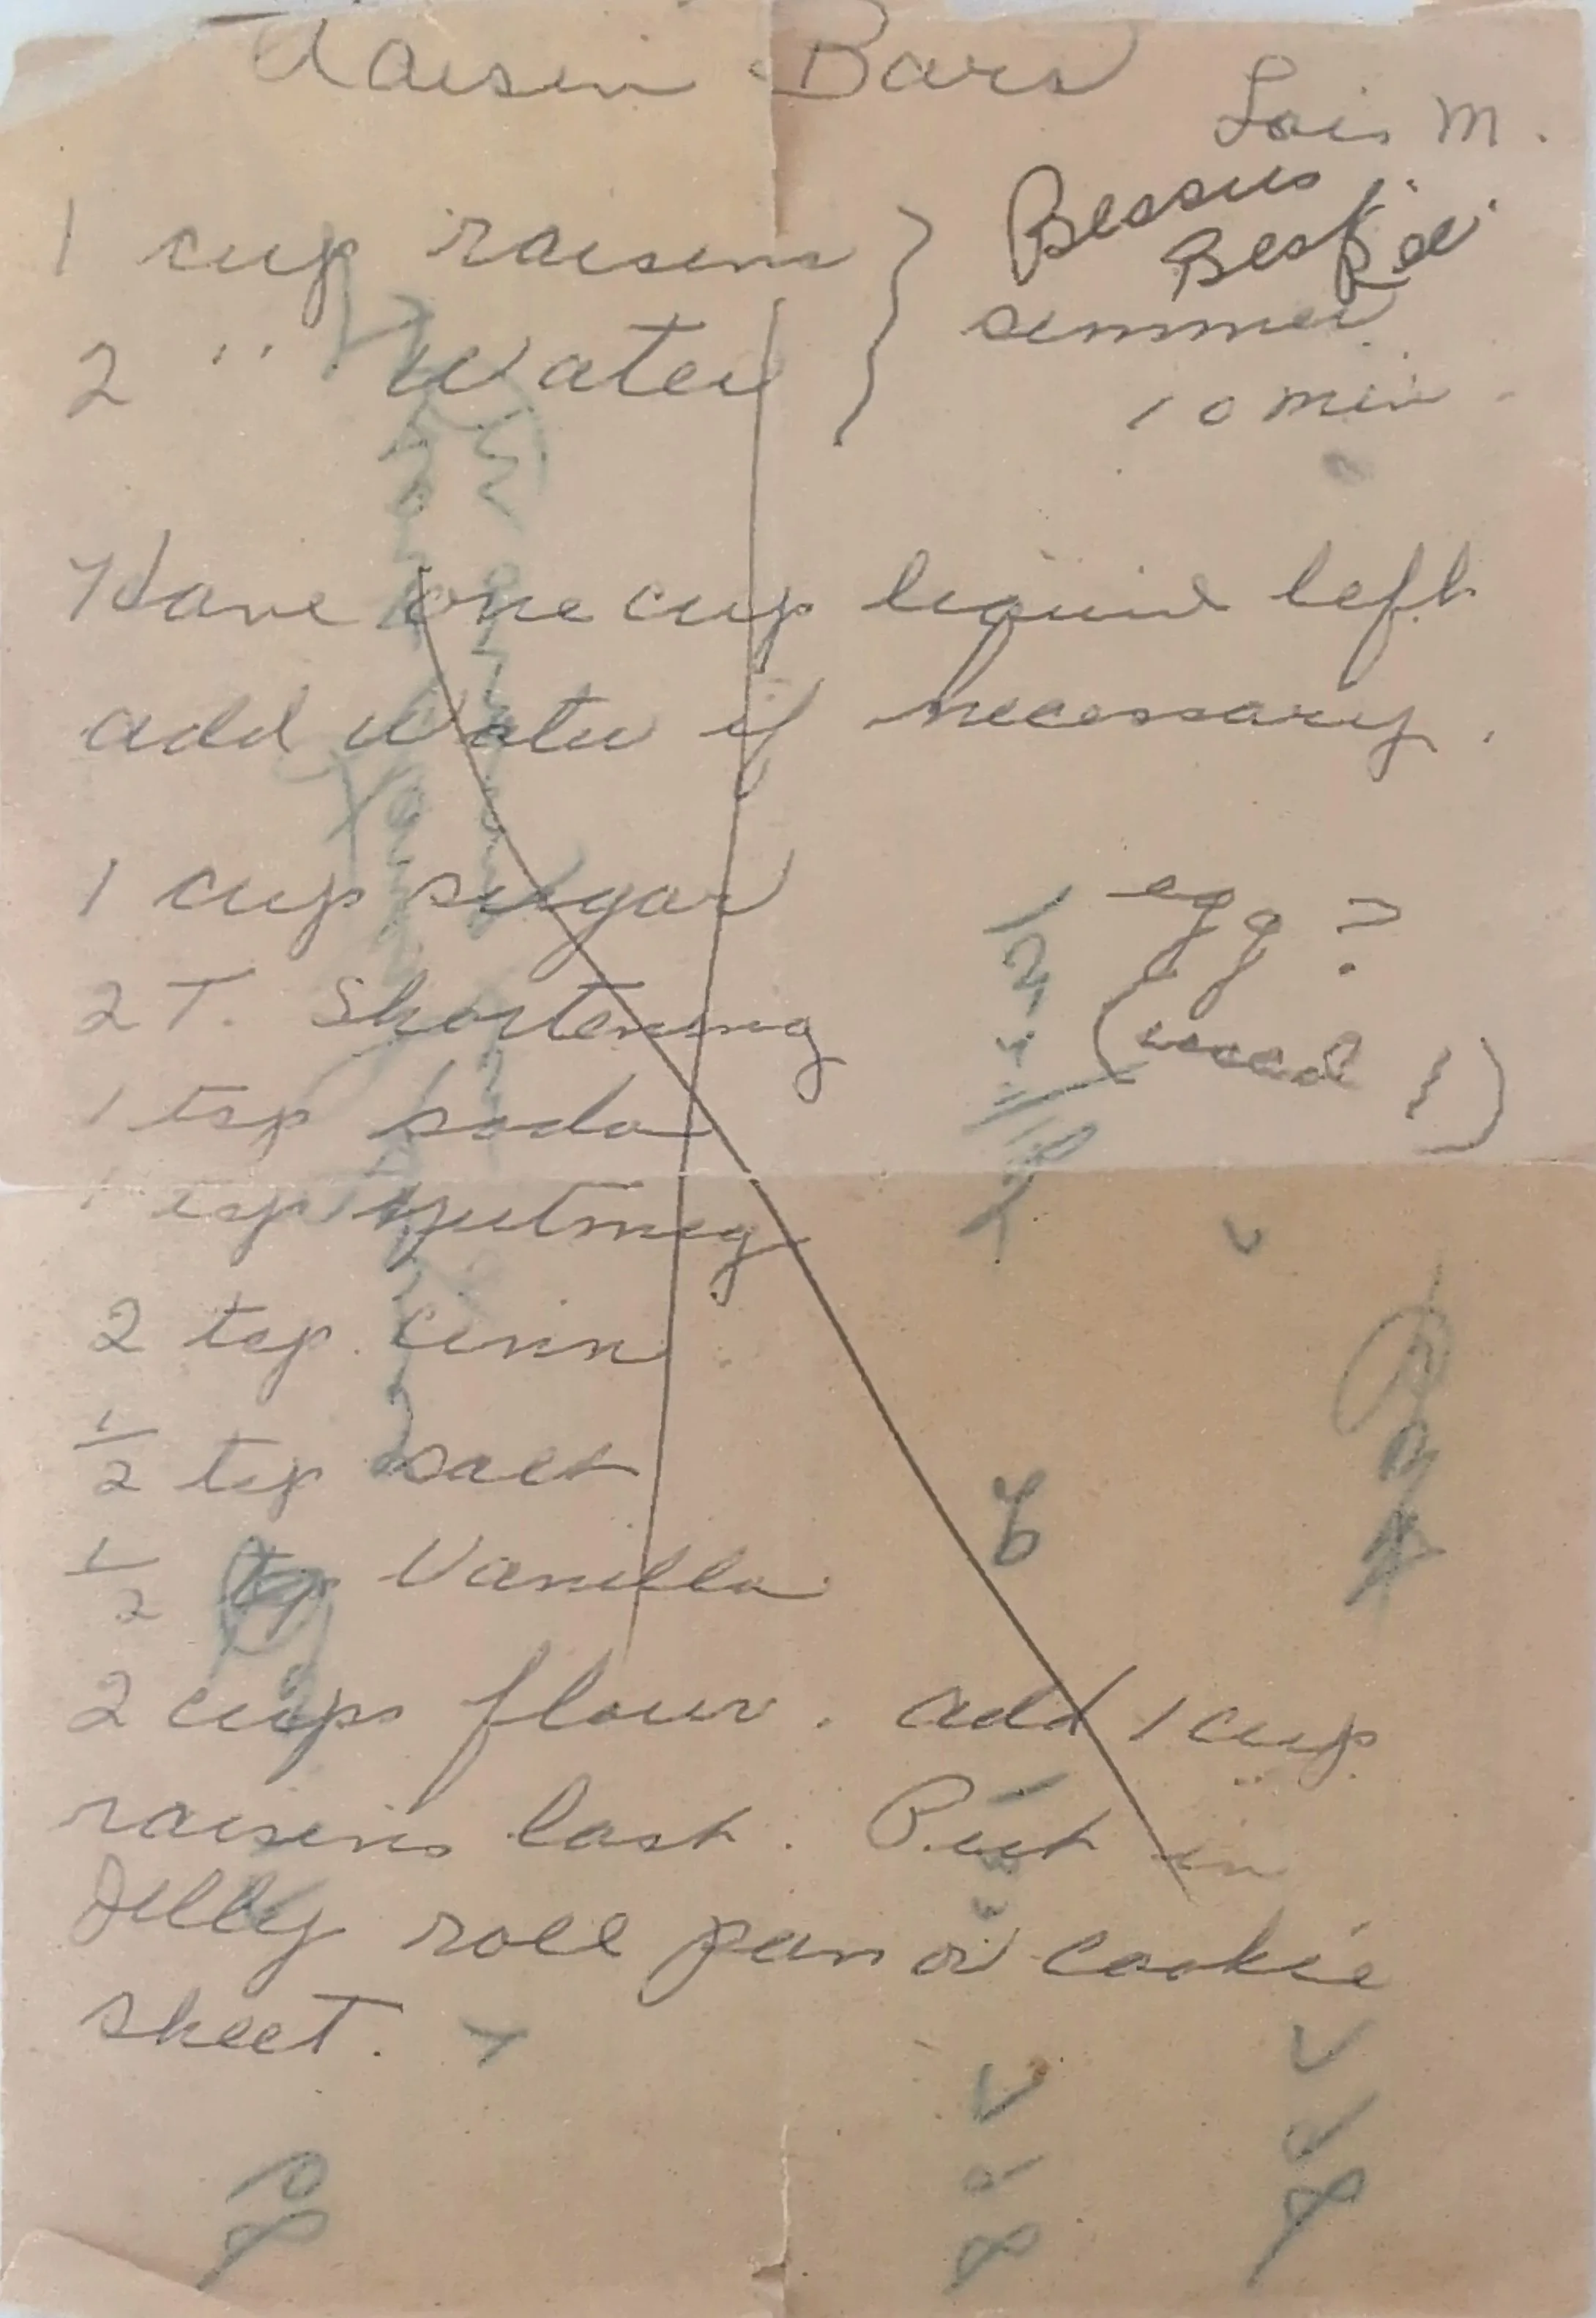 Raisin Bars
Lois M.
1 cup raisins } Bessie's
Best
2 " water simmer
10 min.
Have one cup liquid left
add water if necessary.
1 cup sugar egg ?
2 T. Shortening (used 1)
1 tsp soda
1 tsp nutmeg
2 tsp. cinn
1/2 tsp salt
1/2 tsp Vanilla
2 cups flour. add 1 cup
raisins last. Put in
Jelly roll pan or cookie
sheet.